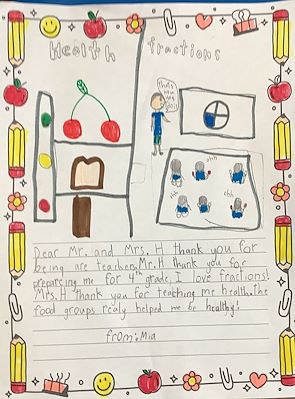 Health fractions
thats
how
you
do it
shh
ehh
chh
Dear Mr. and Mrs. H thank you for
being are teachers. Mr. H thank you for
preparing me for 4th grade. I love fractions!
Mrs. H thank you for teaching me health. the
food groups realy helped me be healthy!
from: Mia